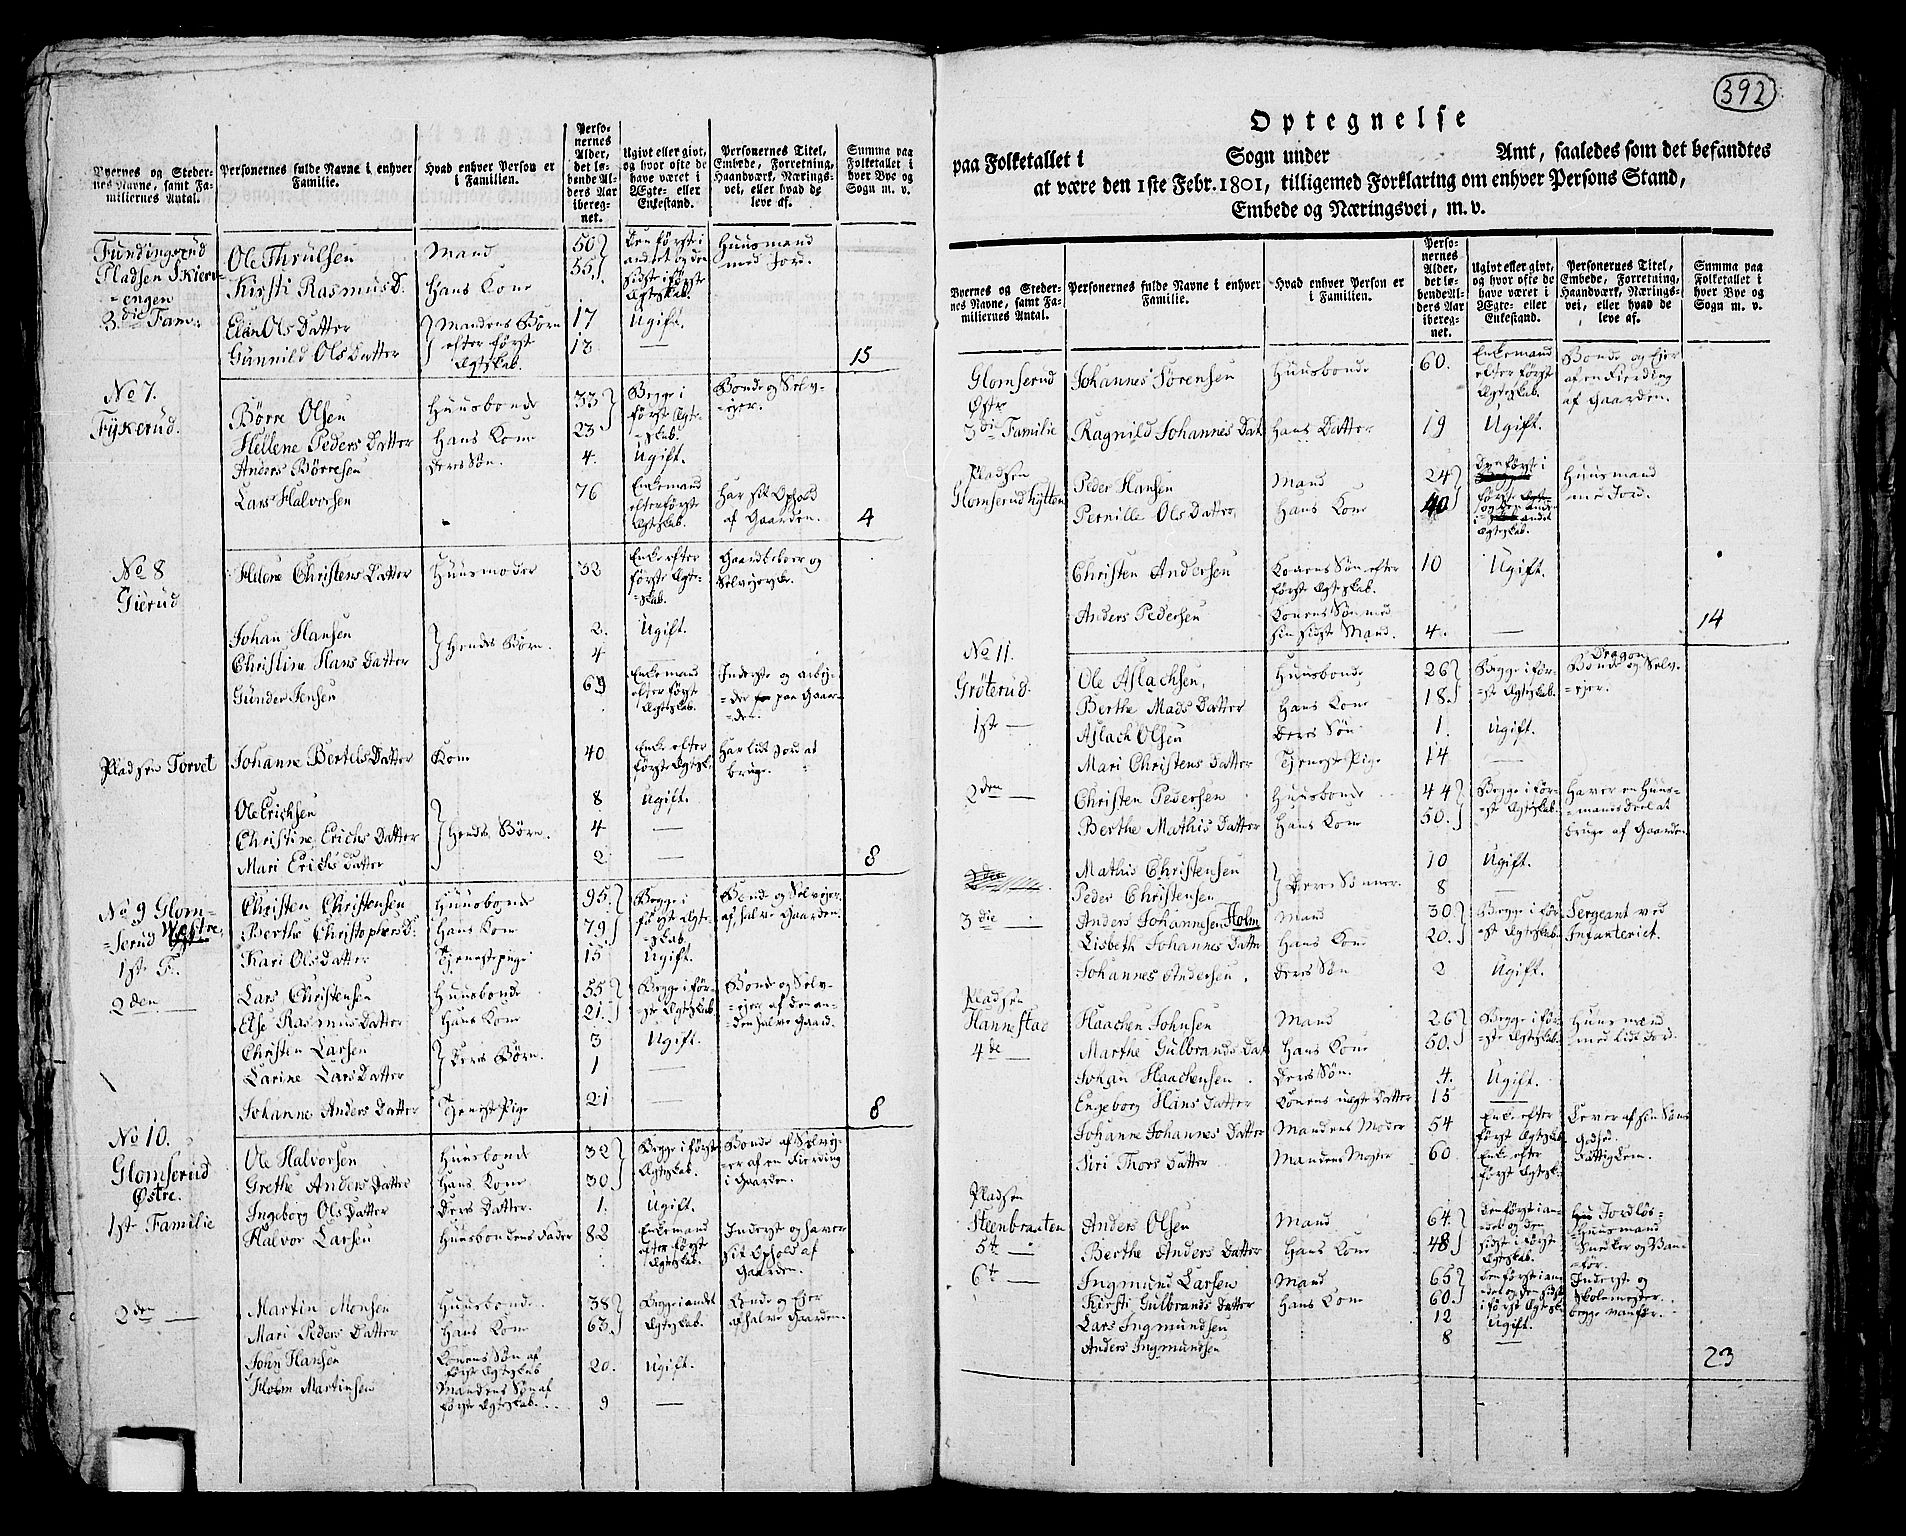 Byernes og Steder-
nes Navne, samt Fa-
miliernes Antal.
Personernes fulde Navne i enhver
Familie.
Hvad enhver Person er
i Familien.
Perso-
nernes
Alder,
det lø-
bende Al-
ders Aar
ibereg-
net.
Ugivt eller givt,
og hvor ofte de
have været i
Ægte- eller
Enkestand.
Personernes Titel,
Embede, Forretning,
Haandværk, Nærings-
vei, eller hvad de
leve af.
Summa paa
Folketallet i
hver Bye og
Sogn m. v.
Fundingsrud
Pladsen Skiern-
=engen
3die Fam:
Ole Thrulsen Mand 50 Den første i andret og den sidste i første Ægteskab. Huusmand med Jord.
Kirsti Rasmus D. Hans Kone 55
Elin Ols Datter Mandens Børn efter første Ægteskab. 17 Ugift.
Gunnild Ols Datter 13 — 15
No 7.
Fykerud.
Børre Olsen Huusbonde 33 Begge i første Ægte=skab. Bonde og Selv=ejer.
Hellene Peders Datter Hans Kone 23
Anders Børresen Deres Søn. 4. Ugift.
Lars Halvorsen 76 Enkemand efter første Ægteskab. Har sit Ophold af Gaarden. 4
No 8
Gierud
Helene Christens Datter Huusmoder 32 Enke efter første Ægte=skab. Gaardbeboer og Selvejerske.
Johan Hansen Hendes Børn. 2. Ugift.
Christine Hans Datter 4 —
Gunder Jensen 69 Enkemand efter første Ægteskab. Inderste og arbej=der paa Gaar=den.
Pladsen Torvet Johanne Bertels Datter Kone 40 Enke efter første Ægtesk. Har lidt Jord at bruge.
Ole Erichsen Hendes Børn. 8 Ugift.
Christine Erichs Datter 4 —
Mari Erichs Datter 2 — 8
No 9 Glom-
=serud Westre,
1ste F.
Christen Christensen Huusbonde 95. Begge i første Ægte=skab. Bonde og Selvejer af halve Gaarden.
Berthe Christophers D: Hans Kone 79
Kari Ols Datter Tjenestepige 15 Ugift.
2den —
Lars Christensen Huusbonde 55 Begge i før=ste Ægteskab. Bonde og Selv=ejer af den an=den halve Gaard.
Else Rasmus Datter Hans Kone 21.
Christen Larsen Deres Børn. 3 Ugift.
Larine Lars Datter 1 —
Johanne Anders Datter Tjeneste Pige 21 — 8
No 10.
Glomserud
Østre.
1ste Familie
Ole Halvorsen Huusbonde 32 Begge i første Ægteskab. Bonde af Selvej=er af en Fierding i Gaarden.
Grethe Anders Datter Hans Kone 30
Ingeborg Ols Datter Deres Datter. 1. Ugift.
Halvor Larsen Huusbondens Fader 82 Enkemand efter første Ægteskab. Inderst og haver sit Ophold af Gaarden.
2den —
Martin Monsen Huusbonde 38 Begge i andet Ægteskab. Bonde og Ejer af halve Gaarden.
Mari Peders Datter Hans Kone 63
John Hansen Konens Søn af første Ægteskab 20. Ugift.
Holm Martinsen Mandens Søn af første Ægteskab. 9 —
392
Optegnelse
paa Folketallet i Sogn under Amt, saaledes som det befandtes
at være den 1ste Febr. 1801, tilligemed Forklaring om enhver Persons Stand,
Embede og Næringsvei, m. v.
Byernes og Steder-
nes Navne, samt Fa-
miliernes Antal.
Personernes fulde Navne i enhver
Familie.
Hvad enhver Person er
i Familien.
Perso-
nernes
Alder,
det lø-
bende Al-
ders Aar
ibereg-
net.
Ugivt eller givt,
og hvor ofte de
have været i
Ægte- eller
Enkestand.
Personernes Titel,
Embede, Forretning,
Haandværk, Nærings-
vei, eller hvad de
leve af.
Summa paa
Folketallet i
hver Bye og
Sogn m. v.
Glomserud
Østre
3die Familie
Johannes Sørensen Huusbonde 60. Enkemand efter første Ægteskab. Bonde og Ejer af en Fierding af Gaarden.
Ragnild Johannes Dat. Hans Datter 19 Ugift.
Pladsen
Glomserud hytten
Peder Hansen Mand 24 Den første i første og den anden i andet Ægteskab. Huusmand med Jord.
Pernille Ols Datter Hans Kone 40
Christen Andersen Konens Søn efter første Ægteskab. 10 Ugift.
Anders Pedersen Konens Søn med sin sidste Mand. 4. — 14
No 11.
Grøterud.
1ste —
Ole Aslachsen, Huusbonde 26 Begge i før=ste Ægteskab. Dragon Bonde og Selv=ejer.
Berthe Mads Datter Hans Kone 18.
Aslach Olsen Deres Søn 1. Ugift.
Mari Christens Datter Tjeneste Pige 14 —
2den —
Christen Pedersen Huusbonde 44 Begge i før=ste Ægteskab. Haver en Huus=mands Deel at bruge af Gaarden
Berthe Mathis Datter Hans Kone 50.
Mathis Christensen Deres Sønner. 10 Ugift.
Peder Christensen 8 —
3die —
Anders Johannesen Holm Mand 30 Begge i før=ste Ægteskab. Sergeant ved Infanteriet.
Lisbeth Johannes Datter Hans Kone 20.
Johannes Andersen Deres Søn 2 Ugift.
Pladsen
Hannestad
4de —
Haachen Johnsen Mand 26 Begge i før=ste Ægteskab. Huusmand med lidt Jord.
Marthe Gulbrands Dat Hans Kone 50.
Johan Haachensen Deres Søn 4. Ugift.
Engeborg Hans Datter Konens uægte Datter 15 —
Johanne Johannes Datter Mandens Moder 54 Enke efter første Ægteskab Lever af sin Søns Godhed.
Siri Thors Datter Mandens Moster 60 Enke efter første Ægtesk. Fattiglem.
Pladsen
Steenbraaten
5te —
Anders Olsen Mand 64. Den første i an=det og den sidste i første Ægteskab. Jordløs Huusmand Snecker og Van=før.
Berthe Anders Datter Hans Kone 48
6te —
Ingmund Larsen Mand 65 Den første i an=det og den sidste i første Ægteskab Inderste og Skolemester begge vanfør.
Kirsti Gulbrands Datter Hans Kone 60.
Lars Ingmundsen 12 Ugift.
Anders Ingmundsen 8 —
23